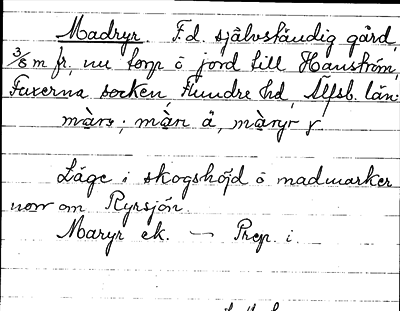 Madryr. F.d. självständig gård,
3/8 m fr, nu torp å jord till Hanström,
Faxerna socken, Flundre hd, Älfsb. län.
Läge i skogshöjd å madmarker
norr om Ryrsjön.
Maryr ek. — Prep. i.